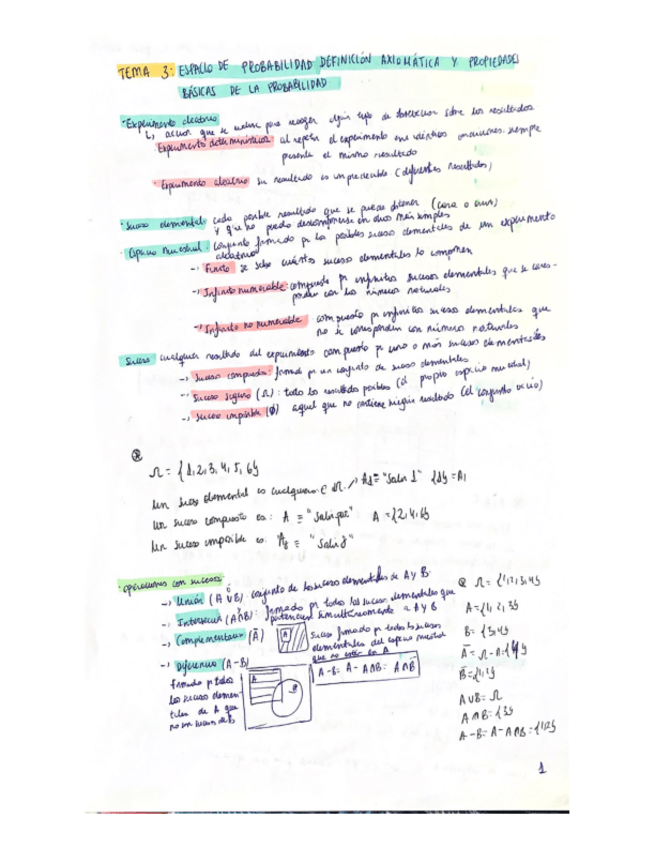 TEMA 3: ESPACIO DE PROBABILIDAD DEFINICIÓN AXIOMÁTICA Y PROPIEDADES
BÁSICAS DE LA PROBABILIDAD
· Experimento aleatorio
↳ acción que se realiza para recoger algún tipo de observación sobre los resultados
Experimento determinístico al repetir el experimento en idénticas condiciones siempre
presenta el mismo resultado
· Experimento aleatorio su resultado es impredecible (diferentes resultados)
· Suceso elemental: cada posible resultado que se puede obtener (cara o cruz)
y que no puede descomponerse en otros más simples
· Espacio muestral: conjunto formado por los posibles sucesos elementales de un experimento
aleatorio
-› Finito se sabe cuántos sucesos elementales lo componen
-› Infinito numerable: compuesto por infinitos sucesos elementales que se corres-
ponden con los números naturales
-› Infinito no numerable compuesto por infinitos sucesos elementales que
no se corresponden con números naturales
Suceso cualquier resultado del experimento compuesto por uno o más sucesos elementales
-› Suceso compuesto: formado por un conjunto de sucesos elementales
-› Suceso seguro (Ω): todos los resultados posibles (el propio espacio muestral)
-› Suceso imposible (Ø) aquel que no contiene ningún resultado (el conjunto vacío)
Ω = {1,2,3,4,5,6}
Un suceso elemental es cualquiera ∈ Ω / A1 = "Salir 1" {1} = A1
Un suceso compuesto es: A = "Salir par" A = {2,4,6}
Un suceso imposible es: = "Salir
· operaciones con sucesos
-› Unión (A ∪ B): conjunto de los sucesos elementales de A y B
-› Intersección (A∩B): formado por todos los sucesos elementales que
pertenecen simultáneamente a A y B
-› Complementario (Ā) A Suceso formado por todos los sucesos
elementales del espacio muestral
que no están en A
-› Diferencia (A-B)
formado por todos
los sucesos elemen-
tales de A que
no son sucesos de B
A B
A-B = A - A∩B = A∩B̄
Ω = {1,2,3,4}
A = {1,2,3}
B = {3,4}
Ā = Ω - A = {4}
B̄ = {1,2}
A∪B = Ω
A∩B = {3}
A-B = A - A∩B = {1,2}
1